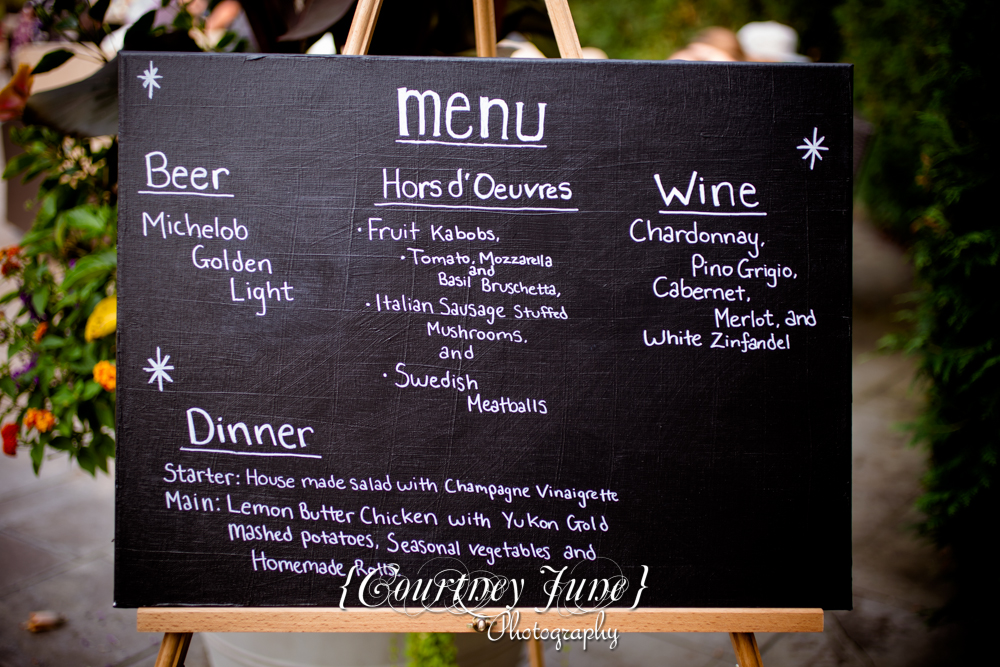 menu
Beer
Michelob
Golden
Light
Hors d'Oeuvres
· Fruit Kabobs,
· Tomato, Mozzarella
and
Basil Bruschetta,
· Italian Sausage Stuffed
Mushrooms,
and
· Swedish
Meatballs
Wine
Chardonnay,
Pino Grigio,
Cabernet,
Merlot, and
White Zinfandel
Dinner
Starter: House made salad with Champagne Vinaigrette
Main: Lemon Butter Chicken with Yukon Gold
mashed potatoes, Seasonal vegetables and
Homemade Rolls
{Courtney June}
Photography